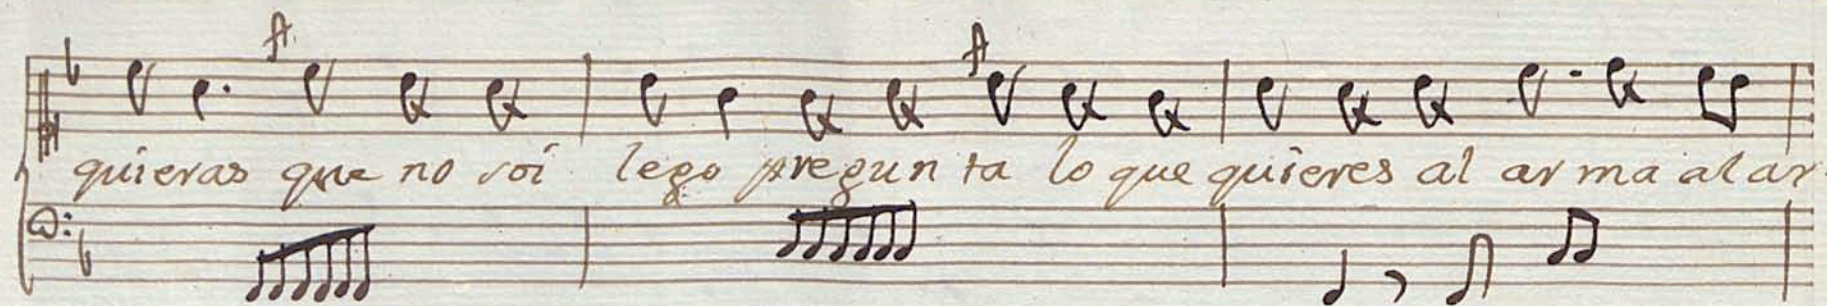 quieras que no soi lego pregunta lo que quieres al arma al ar